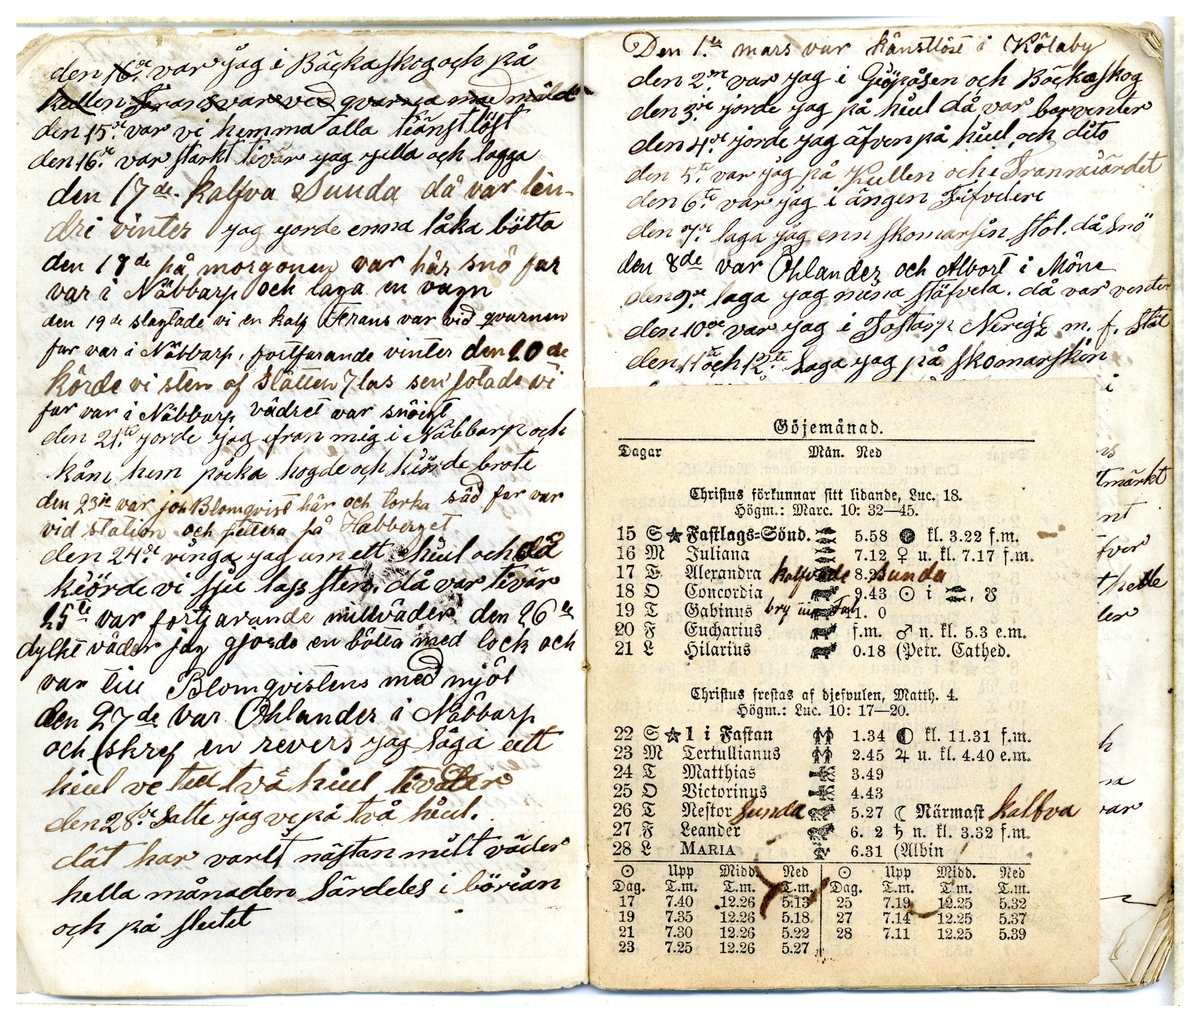 den 16de var jag i Bäckaskog och på
kullen Frans var ved qvarna med mäld
den 15de var vi hemma alla tiänstlöst
den 16de var starkt tivär jag jella och lagga
den 17de kalfva Sunda då var lin-
dri vinter jag jorde enna låka bötta
den 18de på morgonen var här snö far
var i Näbbarp och laga en vagn
den 19de slagtade vi en kalf Frans var vid qvarnen
far var i Näbbarp, fortfarande vinter den 20de
körde vi sten af Slätten 7 las sen solade vi
far var i Näbbarp vädret var snöigt
den 21te jorde jag ifran mig i Näbbarp och
kåm hem påcka hogde och kiörde brote
den 23de var joh Blomqvist här och torka säd far var
vid station och på Habberget
den 24de ringa jag um ett hiul och då
kiörde vi sju lass sten, då var tivär
25te var fortfarande milt väder den 26te
dylikt väder jag gjorde en bötta med lock och
var till Blomqvistens med mjöl
den 27de var Öhlander i Näbbarp
och skref en revers jag såga ett
hiul ve till två hiul tiväder
den 28de Satte jag ve på två hiul.
dät har varit nästan milt väder
hella månaden särdeles i börian
och på slutet
Den 1.ta mars var tiänstlöst i Kölaby
den 2en var jag i och Bäckaskog
den 3di jorde jag på hiul då var barvinter
den 4de jorde jag äfven på hiul och dito
den 5te var jag på Kullen och i Frammiärdet
den 6te var jag i ängen
den 7de laga jag enn skomarsin stol. då snö
den 8de var Öhlander och Albort i Möne
den 9de laga jag mina stäfvela. då var venter
den 10de var jag i m. f. Stål
den 11te och 12te Saga jag på skomarskin
i
tmärkt
Göjemånad.
Dagar Mån. Ned
Christus förkunnar sitt lidande, Luc. 18.
Högm.: Marc. 10: 32—45.
15 S ★ Fastlags-Sönd. 5.58 kl. 3.22 f.m.
16 M Juliana 7.12 ♀ u. kl. 7.17 f.m.
17 T Alexandra kalfvade Sunda 8.2
18 O Concordia 9.43 ☉ i ♓, ☋
19 T Gabinus 11. 0
20 F Eucharius f.m. ♂ n. kl. 5.3 e.m.
21 L Hilarius 0.18 (Petr. Cathed.
Christus frestas af djefvulen, Matth. 4.
Högm.: Luc. 10: 17—20.
22 S ★ 1 i Fastan 1.34 kl. 11.31 f.m.
23 M Tertullianus 2.45 ♃ u. kl. 4.40 e.m.
24 T Matthias 3.49
25 O Victorinus 4.43
26 T Nestor Sunda 5.27 ☾ Närmast kalfva
27 F Leander 6. 2 ♄ n. kl. 3.32 f.m.
28 L MARIA 6.31 (Albin
☉ Upp Midd. Ned ☉ Upp Midd. Ned
Dag. T.m. T.m. T.m. Dag. T.m. T.m. T.m.
17 7.40 12.26 5.13 25 7.19 12.25 5.32
19 7.35 12.26 5.18 27 7.14 12.25 5.37
21 7.30 12.26 5.22 28 7.11 12.25 5.39
23 7.25 12.26 5.27